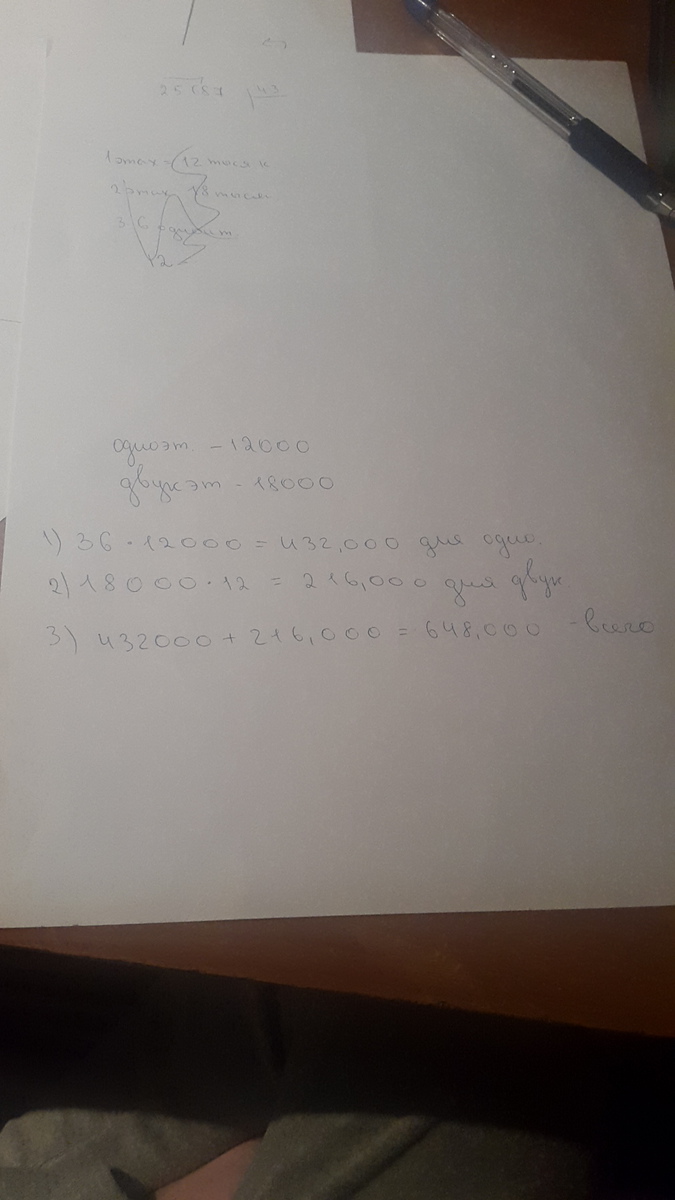 25657 43
1 этаж - 12 тысяч
2 этаж 18 тысяч
36 одноэт.
12 -
одноэт. - 12000
двухэт - 18000
1) 36 · 12000 = 432,000 для одно.
2) 18000 · 12 = 216,000 для двух.
3) 432000 + 216,000 = 648,000 - всего